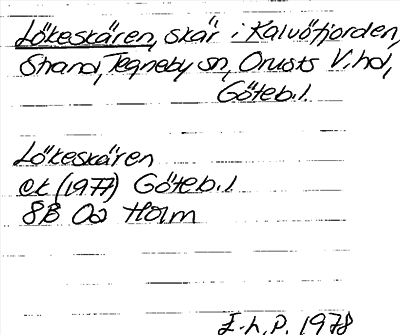 Lökeskären, skär i Kalvöfjorden,
Strand, Tegneby sn, Orusts V. hd,
Göteb. l.
Lökeskären
ek (1977) Göteb. l
8B 0a Holm
E. h. P. 1978